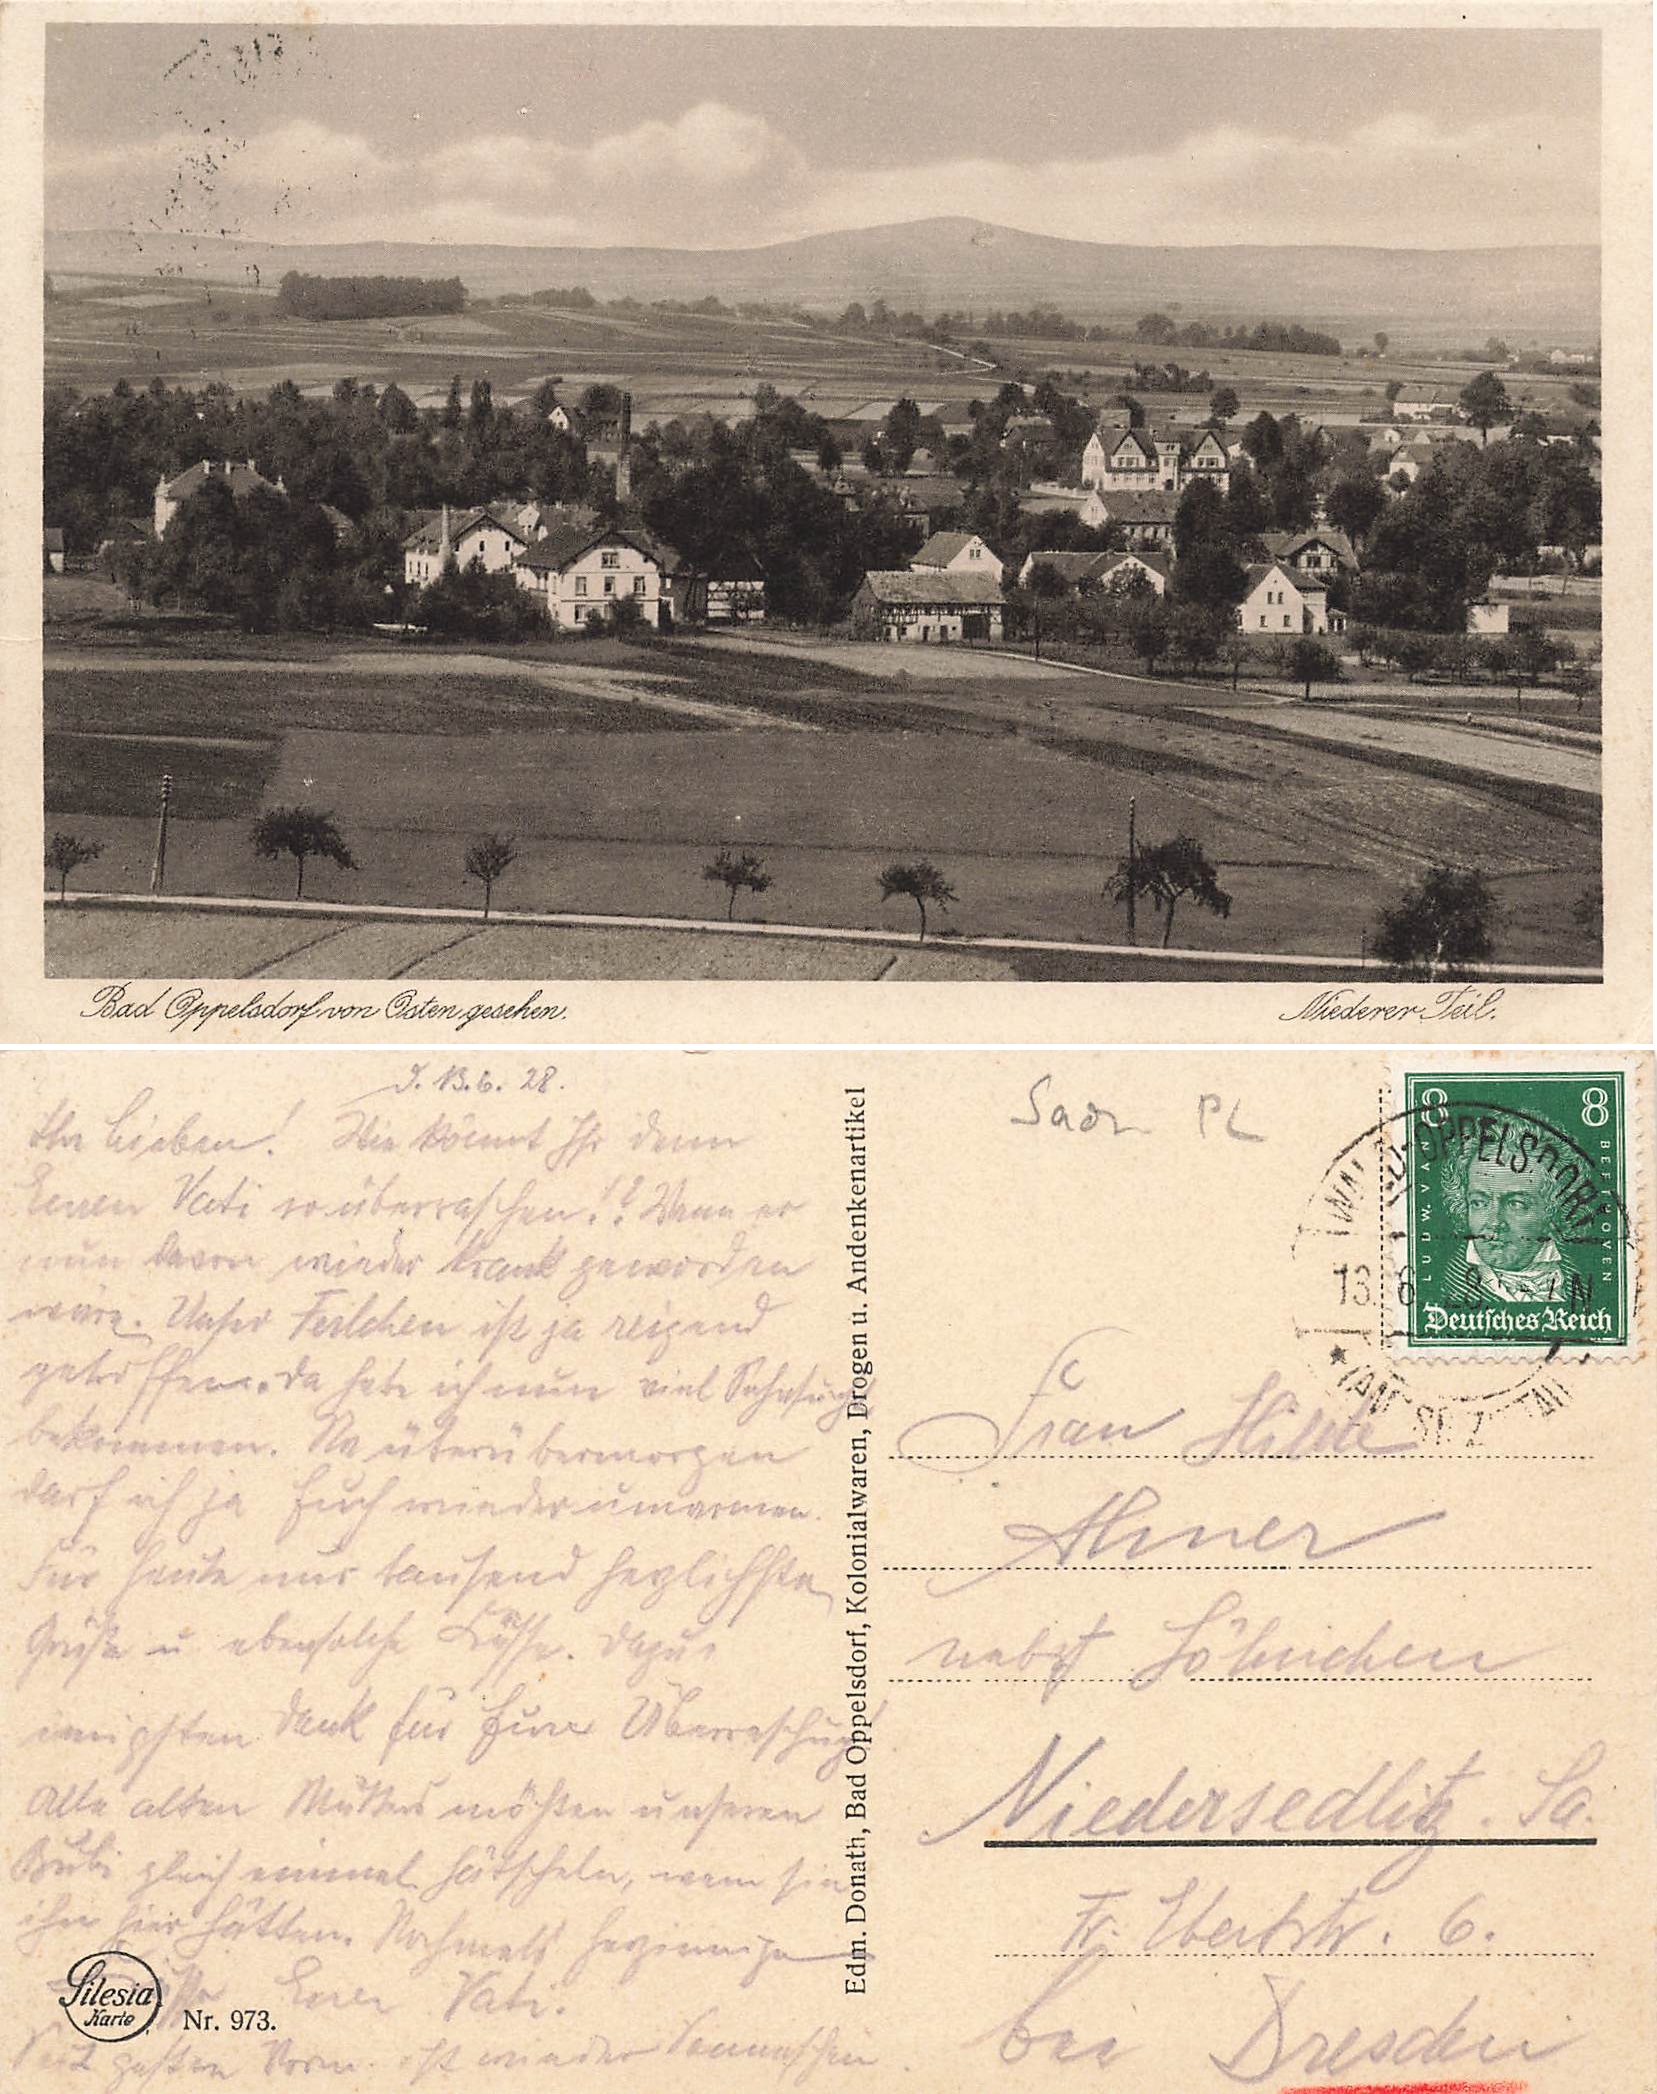 Bad Oppelsdorf von Osten gesehen.
Niederer Teil.
D. 13.6. 28.
Ihr Lieben! Wie könnt Ihr denn
Euren Vati so überraschen!? Wenn er
nun davon wieder krank geworden
wäre. Unser ist ja reizend
getroffen. Da habe ich nun viel Sehnsucht
bekommen. Na überübermorgen
darf ich ja Euch wieder umarmen.
Für heute nur tausend herzlichste
Grüße u. ebensolche Küsse. Dazu
innigsten Dank für Eure Überraschung!
Alle alten Mütter möchten unseren
Bubi gleich einmal hätscheln, wenn sie
ihn hier hätten. Nochmals herzinnige
Euer Vati.
Seit gestern Vorm. ist wieder Sonnenschein.
Silesia
Karte
Nr. 973.
Edm. Donath, Bad Oppelsdorf, Kolonialwaren, Drogen u. Andenkenartikel
Sachs PL
8 8
LUDW. VAN BEETHOVEN
Deutsches Reich
OPPELSDORF
13. 6. 28. N
Frau Hilde
nebst Söhnchen
Niedersedlitz. Sa.
Fr. Ebertstr. 6.
bei Dresden